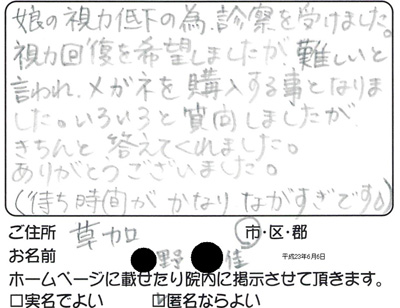 娘の視力低下の為、診察を受けました。
視力回復を希望しましたが難しいと
言われ、メガネを購入する事となりま
した。いろいろと質問しましたが
きちんと答えてくれました。
ありがとうございました。
(待ち時間がかなりながすぎです)
ご住所 草加 市・区・郡
お名前 ●野●佳 平成23年6月6日
ホームページに載せたり院内に掲示させて頂きます。
□実名でよい ☑匿名ならよい